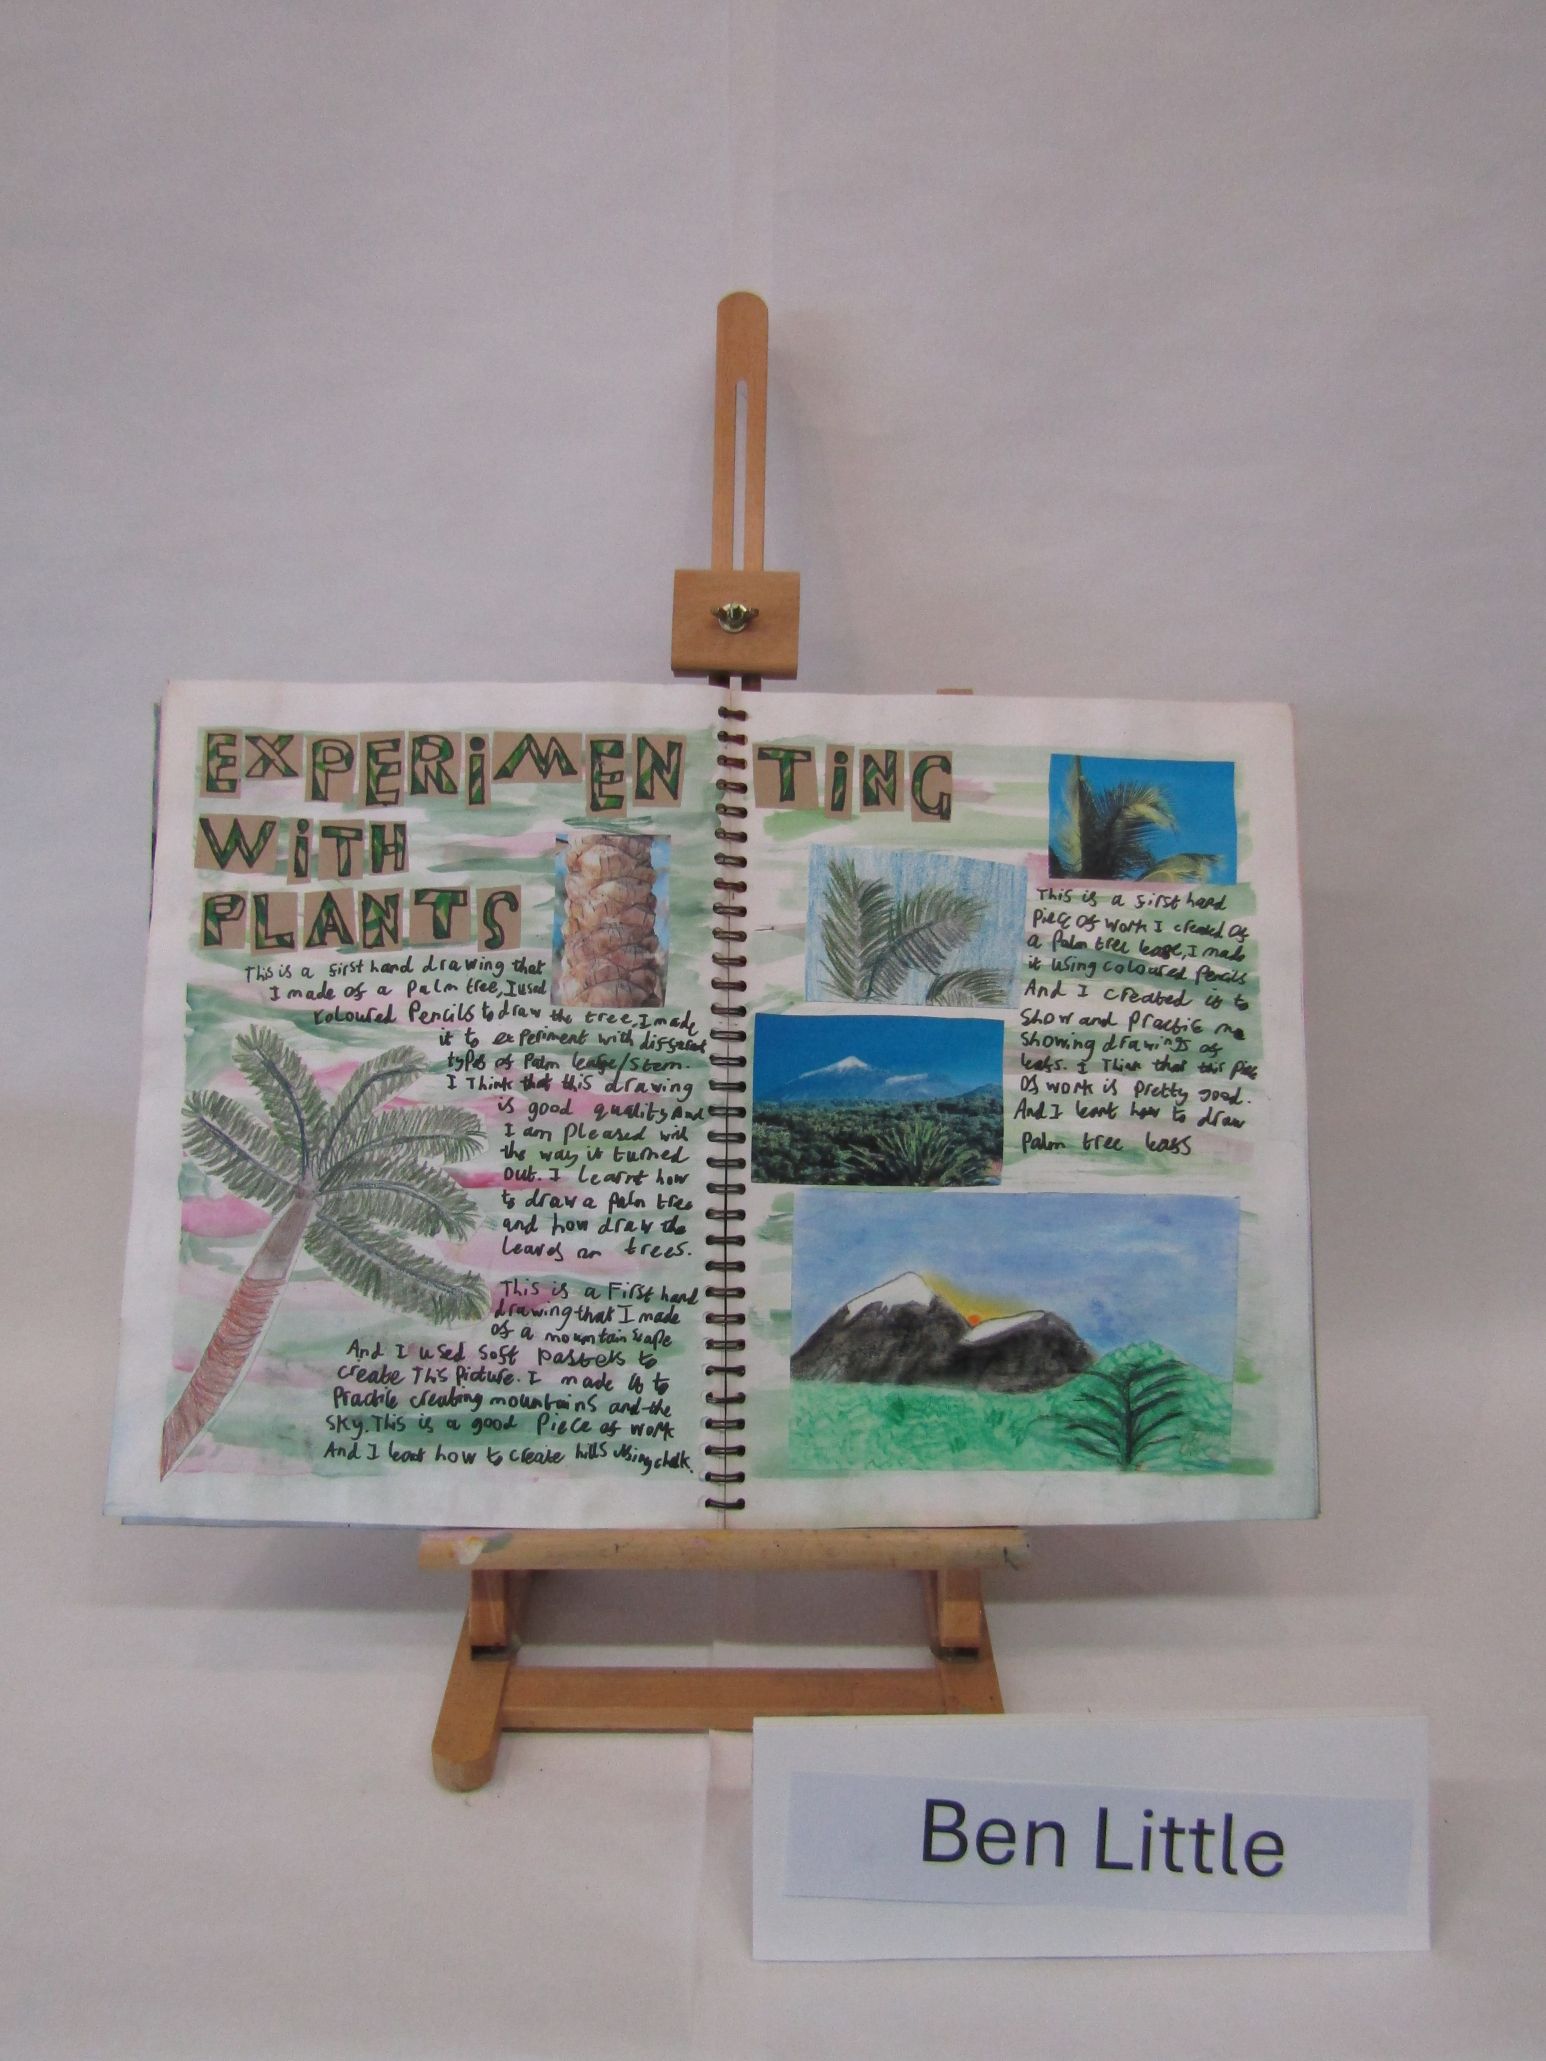 EXPERIMENTING
WiTH
PLANTS
This is a first hand drawing that
I made of a Palm tree, I used
coloured Pencils to draw the tree, I made
it to experiment with different
types of Palm leafe/stem.
I Think that this drawing
is good quality And
I am Pleased with
the way it turned
out. I learnt how
to draw a palm tree
and how draw the
leaves on trees.
This is a First hand
drawing that I made
of a mountain scape
And I used soft pastels to
create This Picture. I made it to
Practice creating mountains and the
sky. This is a good Piece of work
And I leart how to create hills using chalk.
This is a first hand
Piece of work I created of
a Palm tree leafe, I made
it using coloured Pencils
And I created it to
Show and Practic me
Showing drawings of
leafs. I Think that this Piece
of work is pretty good.
And I learnt how to draw
Palm tree leafs
Ben Little